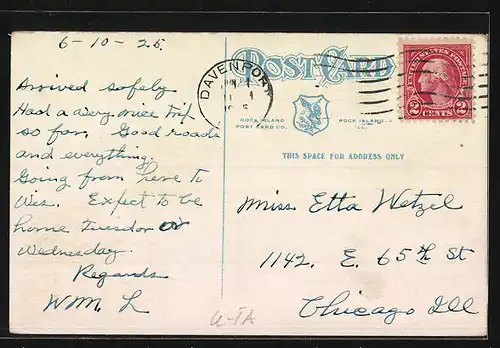 6-10-25.
POST CARD
DAVENPORT
UNITED STATES POSTAGE
2 CENTS 2
Arrived safely
Had a very nice trip
so far. Good roads
and everything.
Going from here to
Wis. Expect to be
home Tuesday or
Wednesday
Regards
WM. L
ROCK ISLAND
POST CARD CO.
ROCK ISLAND
ILL.
THIS SPACE FOR ADDRESS ONLY
Miss Etta Wetzel
1142. E. 65th St
Chicago Ill
U-IA